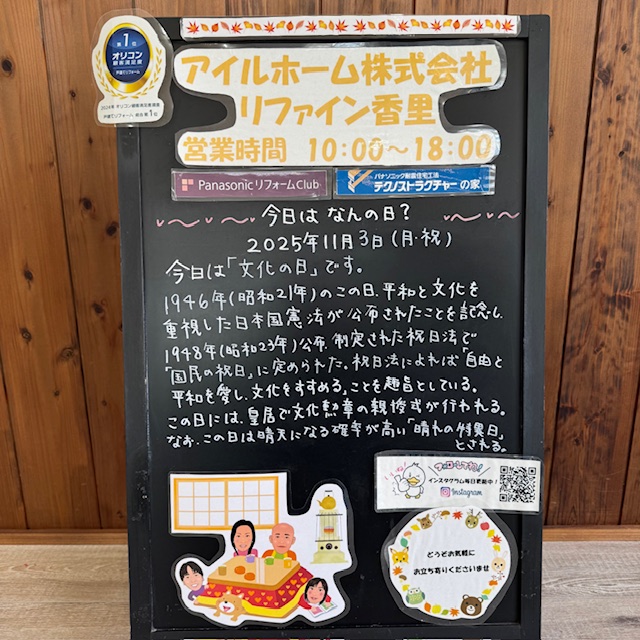 第1位
オリコン
顧客満足度
戸建てリフォーム
2024年 オリコン顧客満足度調査
戸建てリフォーム 前田 第1位
アイルホーム株式会社
リファイン香里
営業時間 10:00～18:00
PanasonicリフォームClub
パナソニック耐震住宅工法
テクノストラクチャーの家
今日は なんの日?
2025年11月3日(月・祝)
今日は「文化の日」です。
1946年(昭和21年)のこの日、平和と文化を
重視した日本国憲法が公布されたことを記念し、
1948年(昭和23年)公布、制定された祝日法で
「国民の祝日」に定められた。祝日法によれば「自由と
平和を愛し、文化をすすめる」ことを趣旨としている。
この日には、皇居で文化勲章の親授式が行われる。
なお、この日は晴天になる確率が高い「晴れの特異日」
とされる。
フォローしてね!
インスタグラム毎日更新中!
Instagram
どうぞお気軽に
お立ち寄りくださいませ